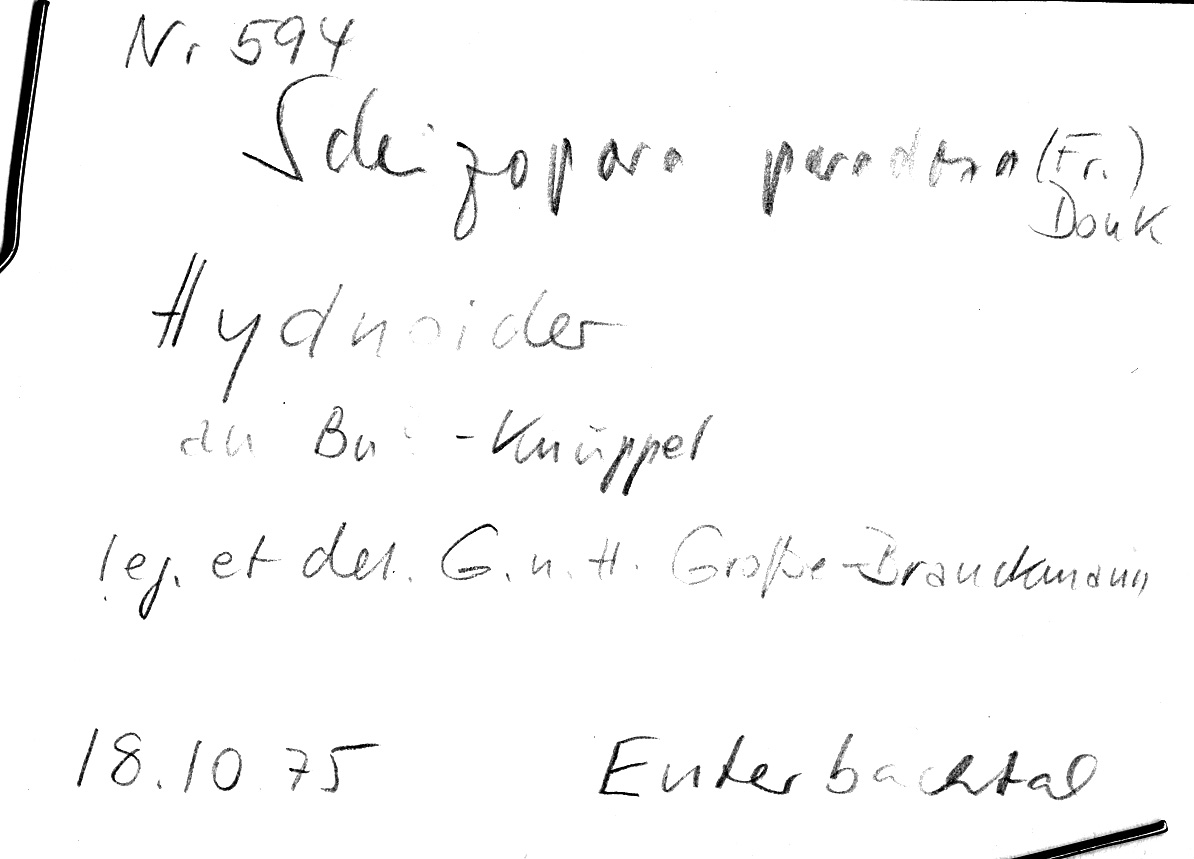 Nr 594
Schizopora paradoxa (Fr.)
Donk
Hydnoider
an -Knüppel
leg. et det. G. u. H. Große-Brauckmann
18.10 75 Enterbachtal